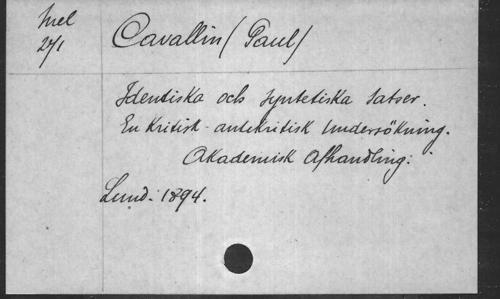 Mel
27/1
Cavallin (Paul)
Identiska och syntetiska satser.
En kritisk-antikritisk undersökning.
Akademisk Afhandling.
Lund. 1894.